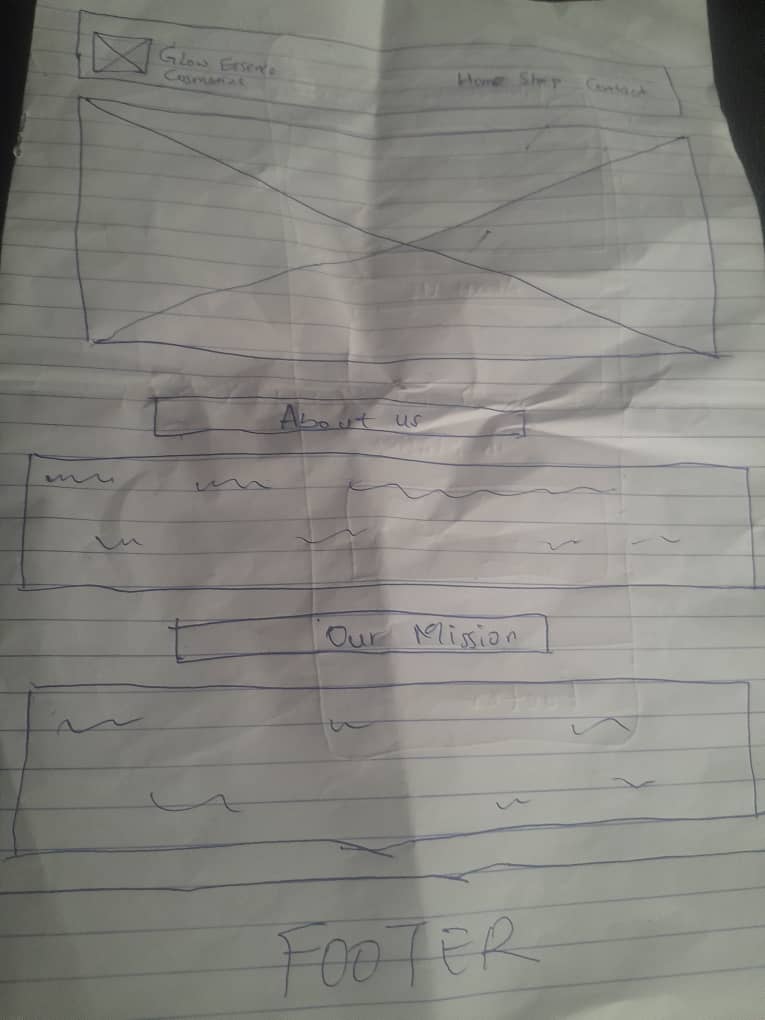 Glow Essence
Cosmetics
Home Shop Contact
About us
Our Mission
FOOTER